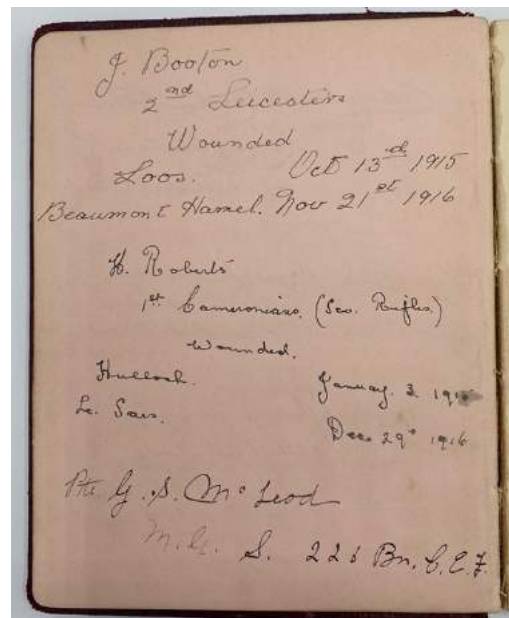 J. Booton
2nd Leicesters
Wounded
Loos. Oct 13rd 1915
Beaumont Hamel. Nov 21st 1916
H. Roberts
1st Cameronians. (Sco. Rifles.)
wounded.
Hulloch. January. 3. 191
Le. Sars. Dec. 29th 1916
Pte. G. S. McLeod
M.G. S. 226 Bn. C.E.F.